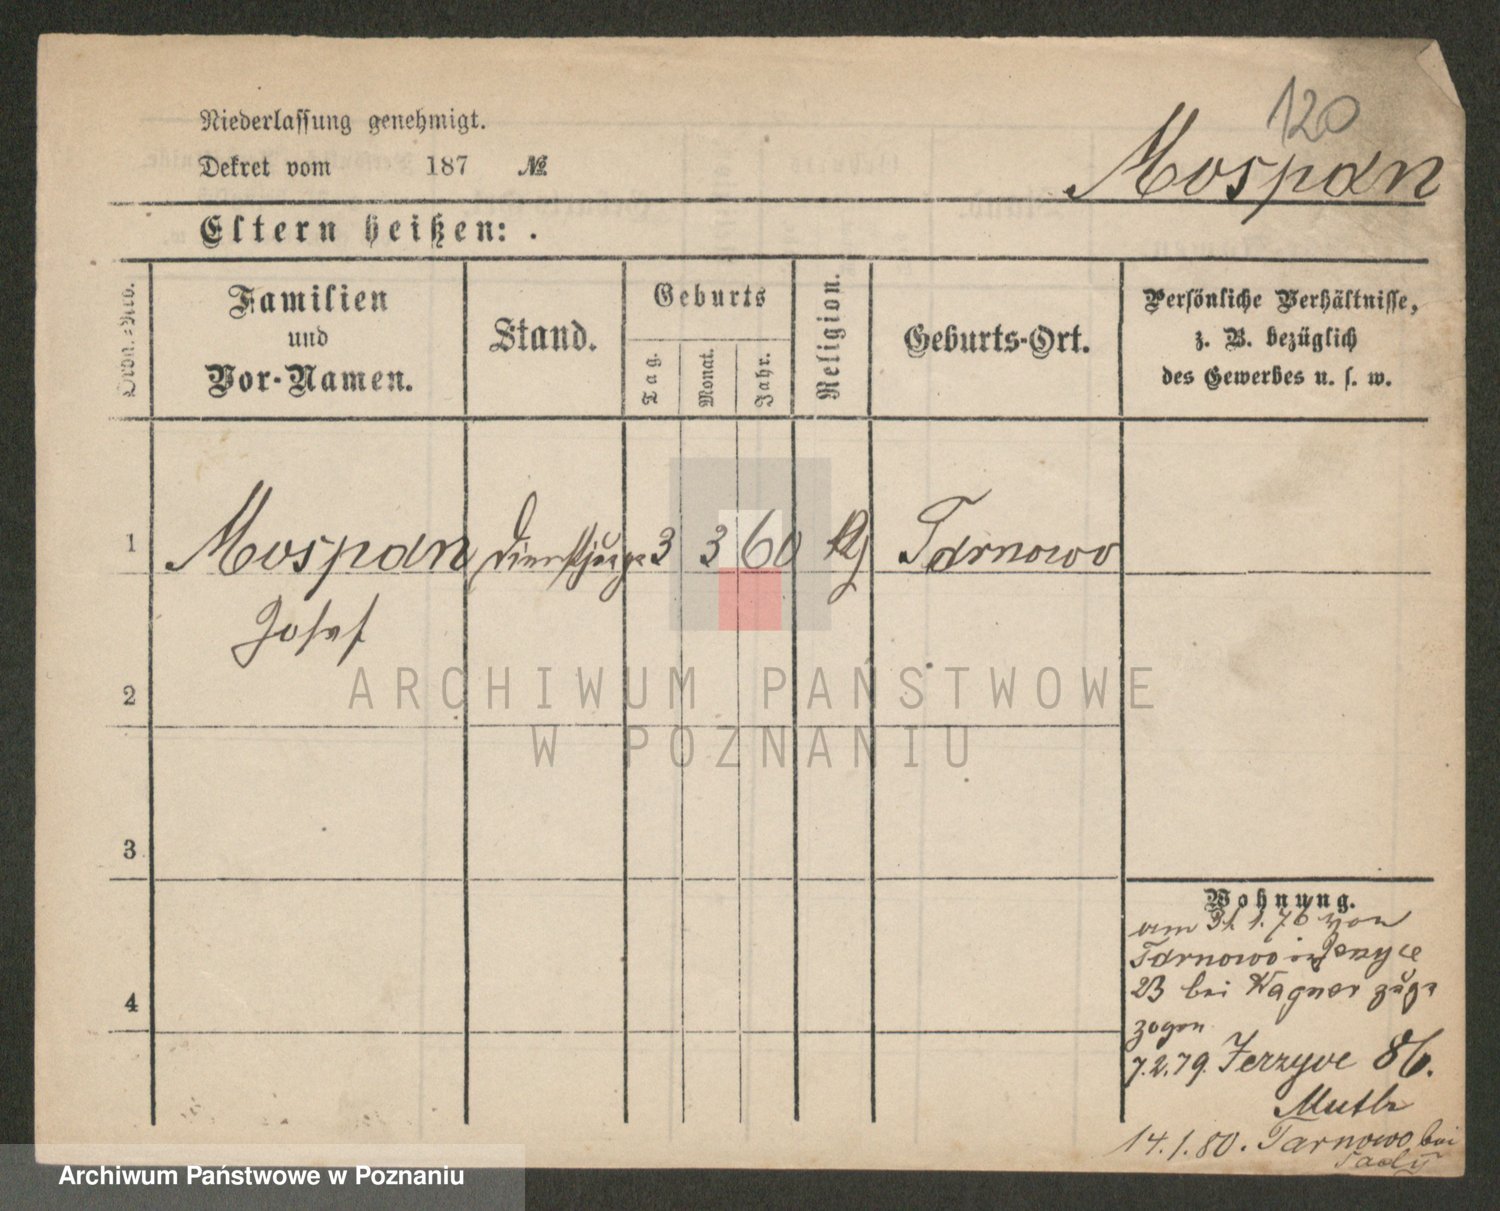 120
Niederlassung genehmigt.
Mospan
Dekret vom 187 №
Eltern heißen: .
Ordn.-Nro.
Familien
und
Vor-Namen.
Stand.
Geburts
Tag.
Monat.
Jahr.
Religion.
Geburts-Ort.
Persönliche Verhältnisse,
z. B. bezüglich
des Gewerbes u. s. w.
1 Mospan Dienstjunge 3 3 60 Tarnowo
Josef
2
3
4
Wohnung.
am 31.1.76 von
Tarnowo in
23 bei Wagner zuge
zogen
7.2.79. Jerzyce 86.
Muth
14.1.80. Tarnowo bei
Sady
ARCHIWUM PAŃSTWOWE
W POZNANIU
Archiwum Państwowe w Poznaniu